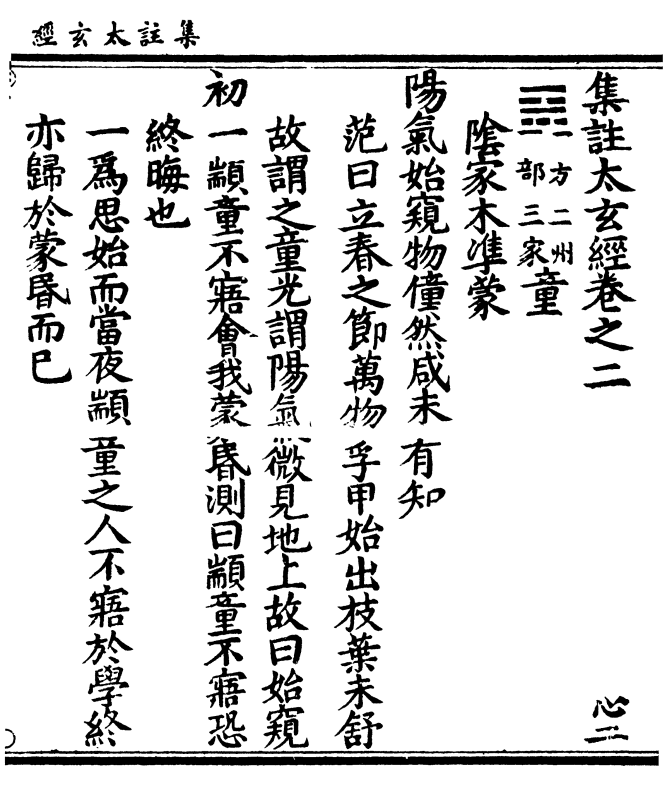 集註太玄經
集註太玄經卷之二
心二
一方二州
一部三家
童
陰家木準蒙
陽氣始窺物僮然咸未有知
范曰立春之節萬物孚甲始出枝葉未舒
故謂之童光謂陽氣微見地上故曰始窺
初一顓童不寤會我蒙昏測曰顓童不寤恐
終晦也
一爲思始而當夜顓童之人不寤於學終
亦歸於蒙昬而已